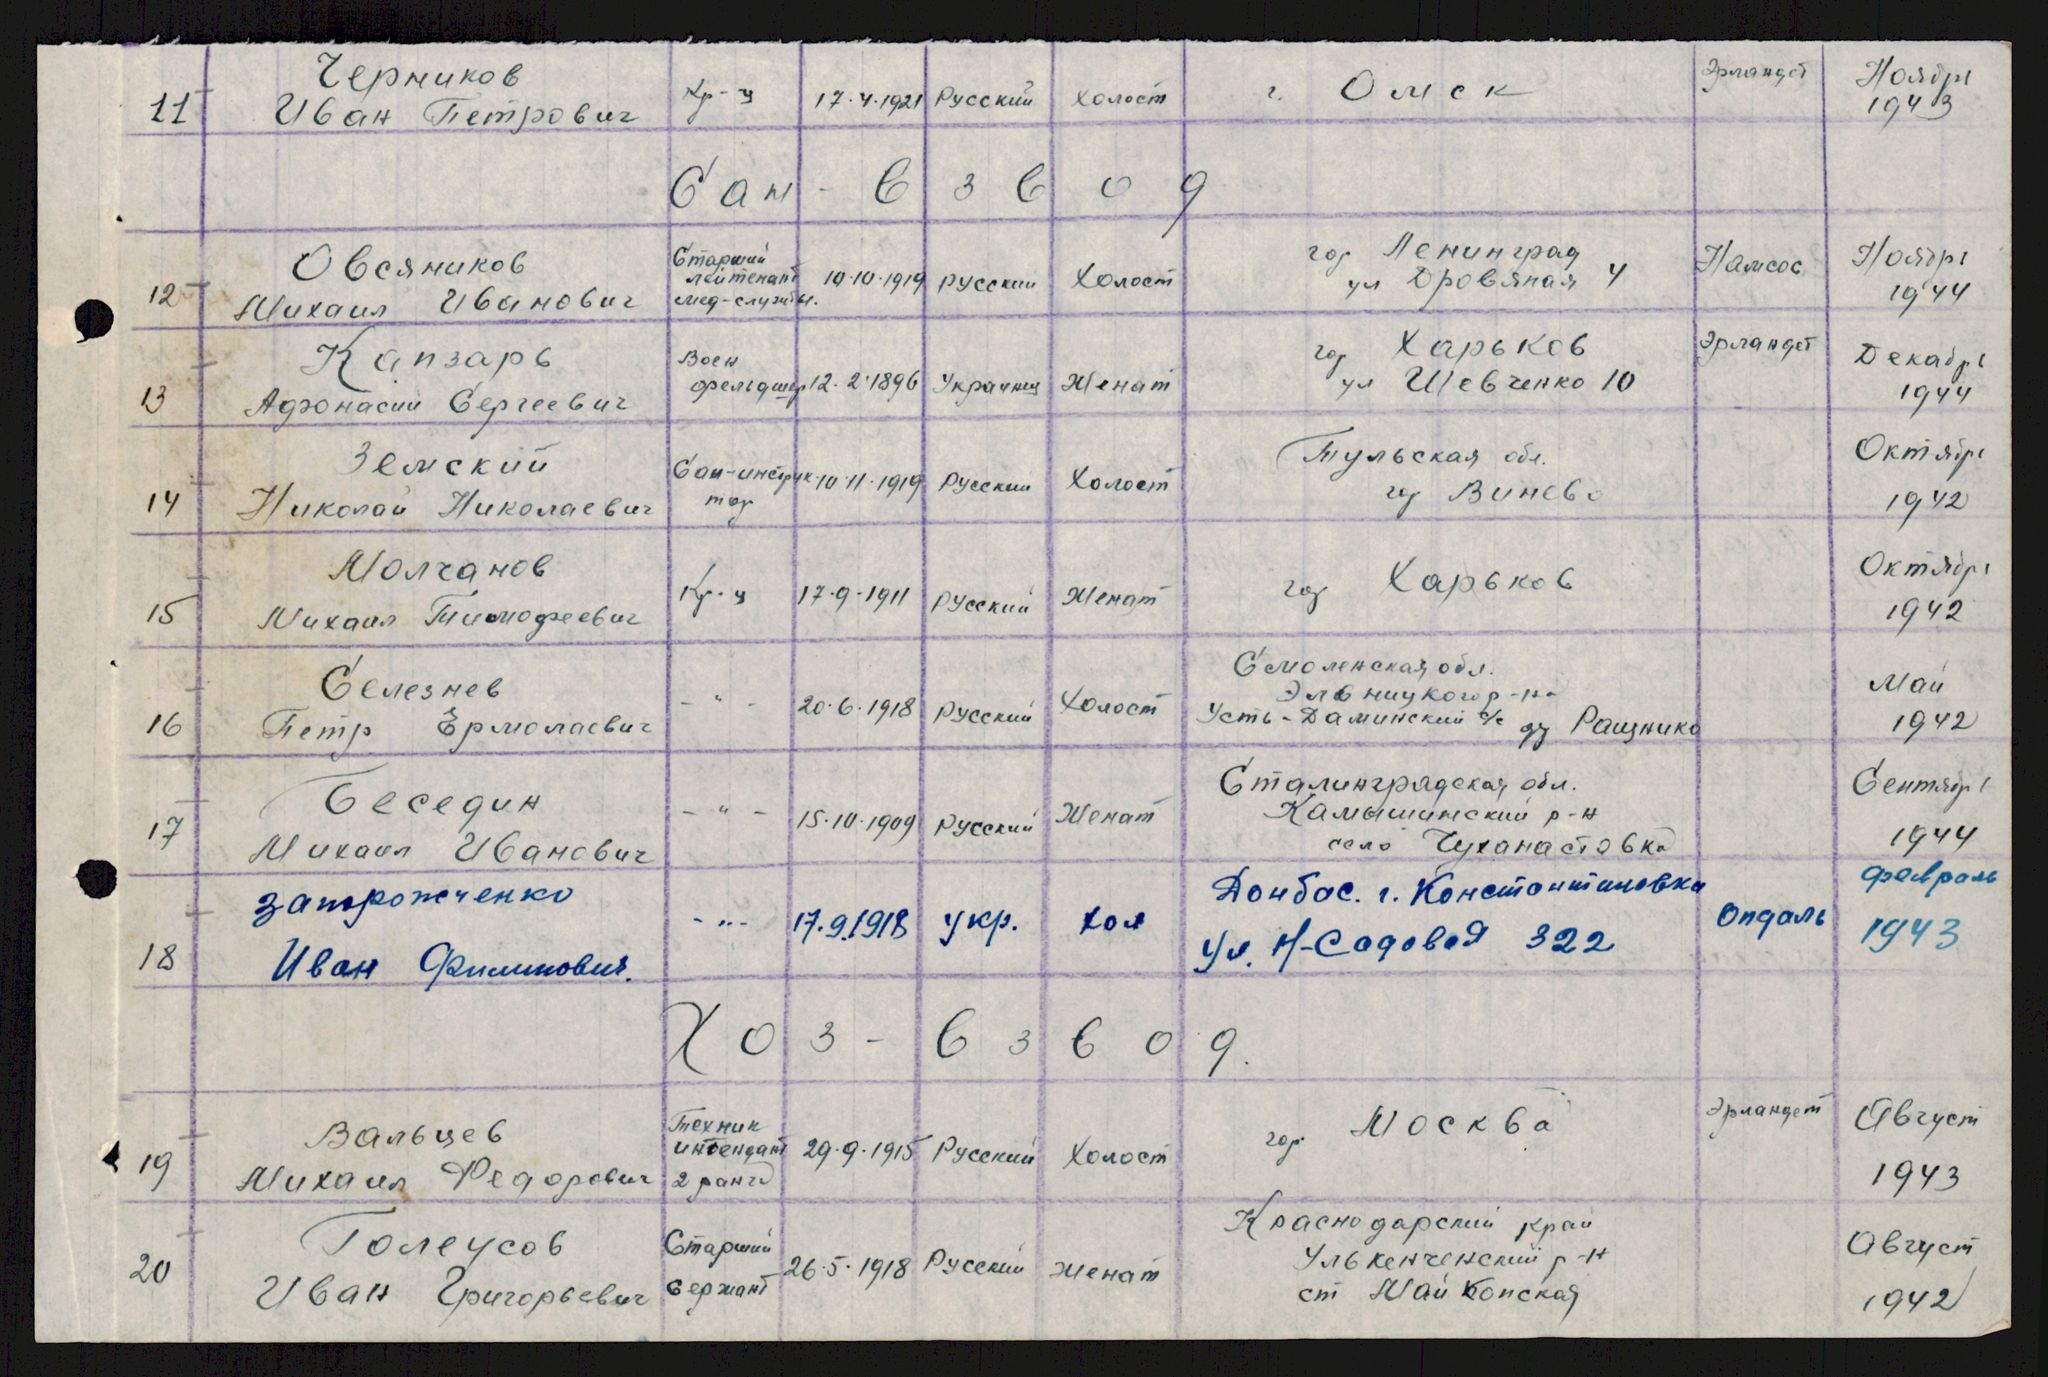 11 Черников Иван Петрович Кр-ц 17.4.1921 Русский Холост г. Омск Эрландет Ноябрь 1943
Сан-взвод
12 Овсяников Михаил Иванович Старший лейтенант мед-службы. 10.10.1919 русский Холост гор Ленинград ул Дровяная 4 Намсос Ноябрь 1944
13 Капзарь Афонасий Сергеевич Воен фельдшер 12.2.1896 Украинец Женат гор Харьков ул Шевченко 10 Эрландет Декабрь 1944
14 Земский Николай Николаевич Сан-инструктор 10.11.1919 Русский Холост Тульская обл. гор Винево Октябрь 1942
15 Молчанов Михаил Тимофеевич Кр-ц 17.9.1911 Русский Женат гор Харьков Октябрь 1942
16 Селезнев Петр Ермолаевич -"- 20.6.1918 Русский Холост Смоленская обл. Эльницкого р-на Усть-Даминский с/с д. Ращнико Май 1942
17 Беседин Михаил Иванович -"- 15.10.1909 Русский Женат Сталинградская обл. Камышинский р-н село Чуханастовка Сентябрь 1944
18 Запорожченко Иван Филипович. -"- 17.9.1918 укр. Хол Донбас. г. Константиновка ул. Н-Садовая 322 Опдаль февраль 1943
Хоз-взвод.
19 Вальцев Михаил Федорович Техник интендант 2 ранга 29.9.1915 Русский Холост гор. Москва Эрландет Август 1943
20 Голеусов Иван Григорьевич Старший сержант 26.5.1918 Русский женат Краснодарский край Улькенченский р-н ст Майкопская Август 1942